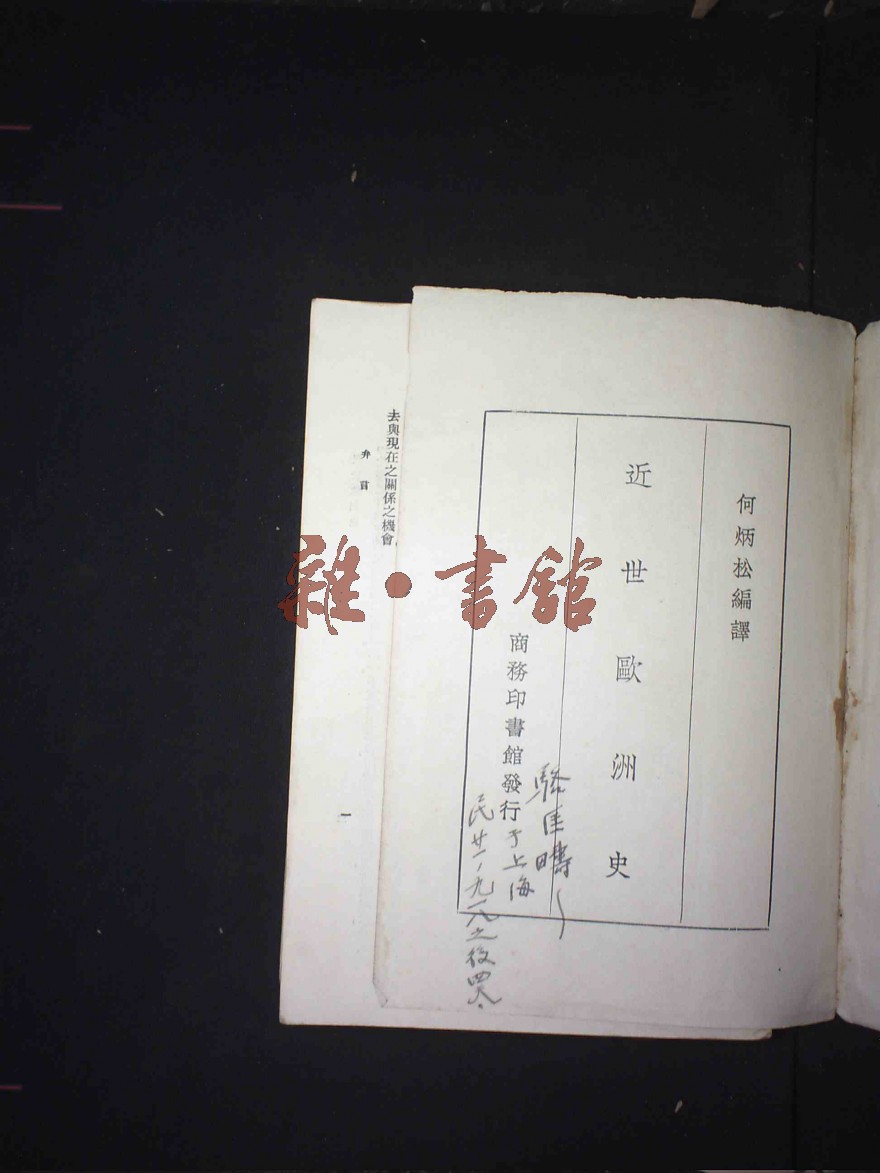 何炳松編譯
近世歐洲史
商務印書館發行
于上海
民廿一、九一八之後四天.
去與現在之關係之機會
弁言
一
雜·書館